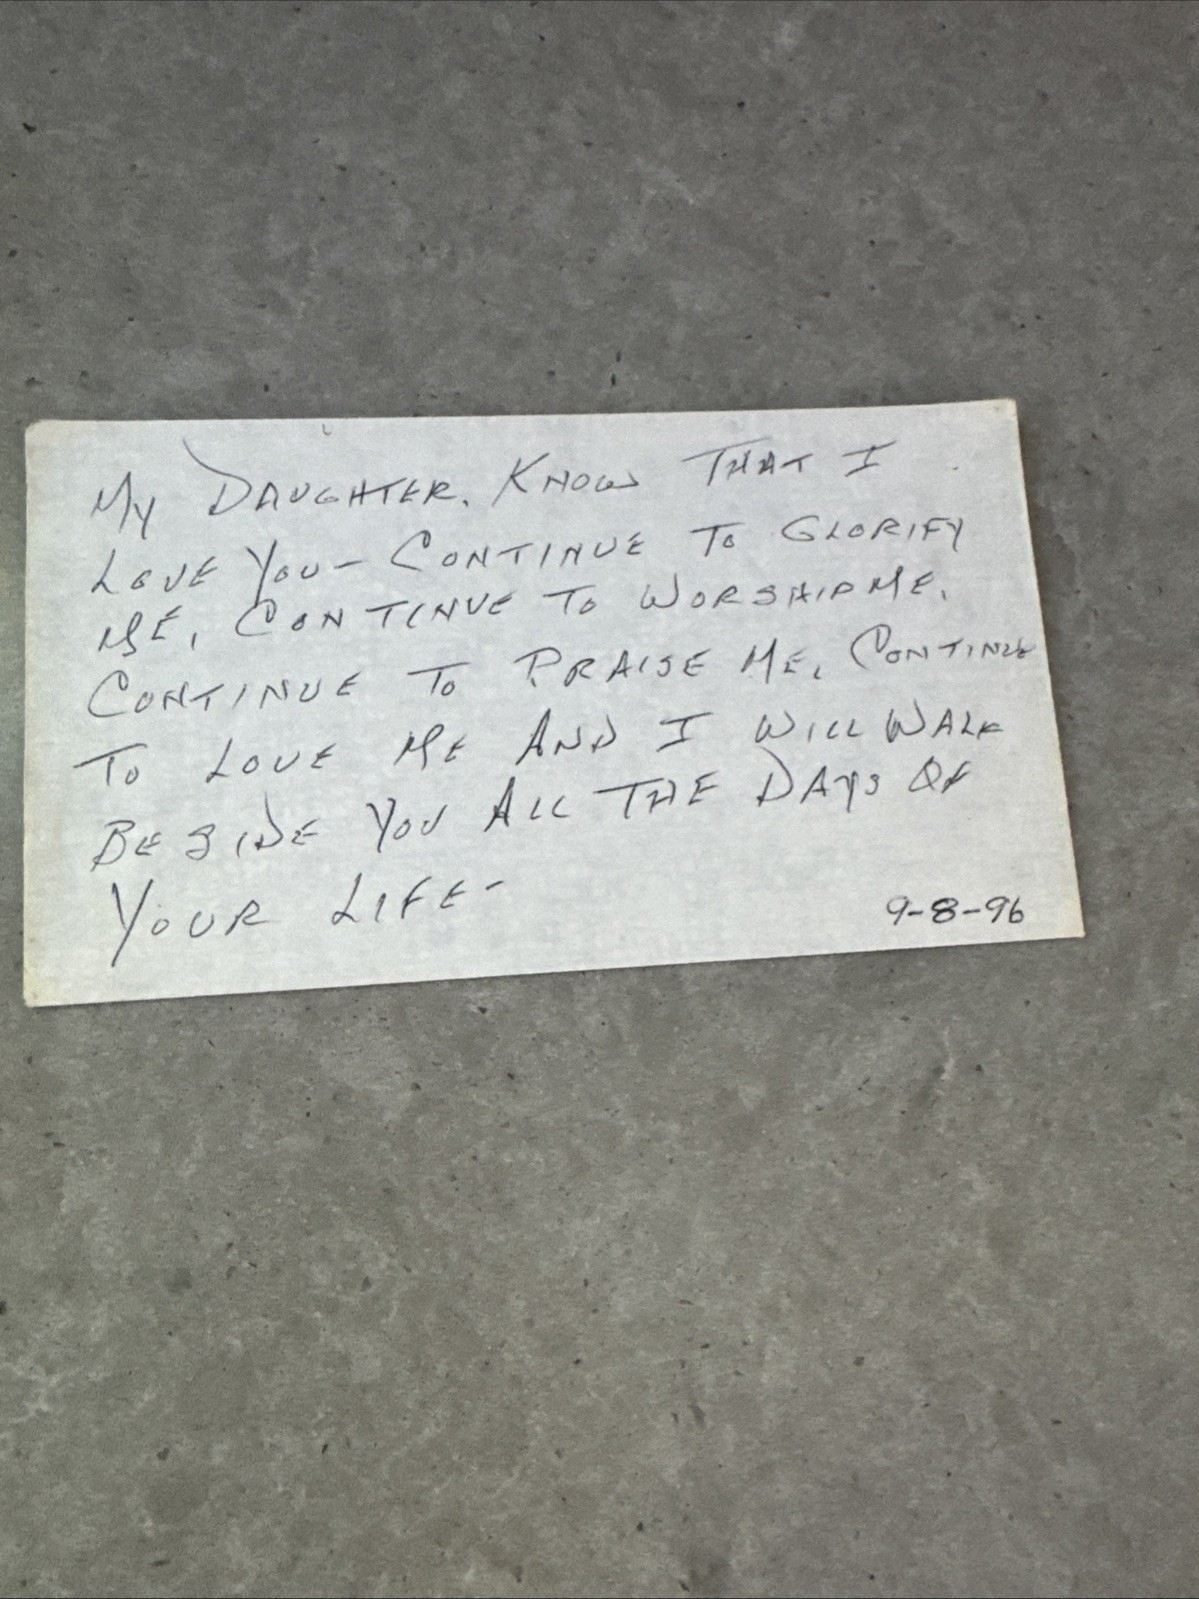 My DAUGHTER. KNOW THAT I
LOVE YOU - CONTINUE TO GLORIFY
ME, CONTINUE TO WORSHIP ME.
CONTINUE TO PRAISE ME, CONTINUE
TO LOVE ME AND I WILL WALK
BESIDE YOU ALL THE DAYS OF
YOUR LIFE -
9-8-96